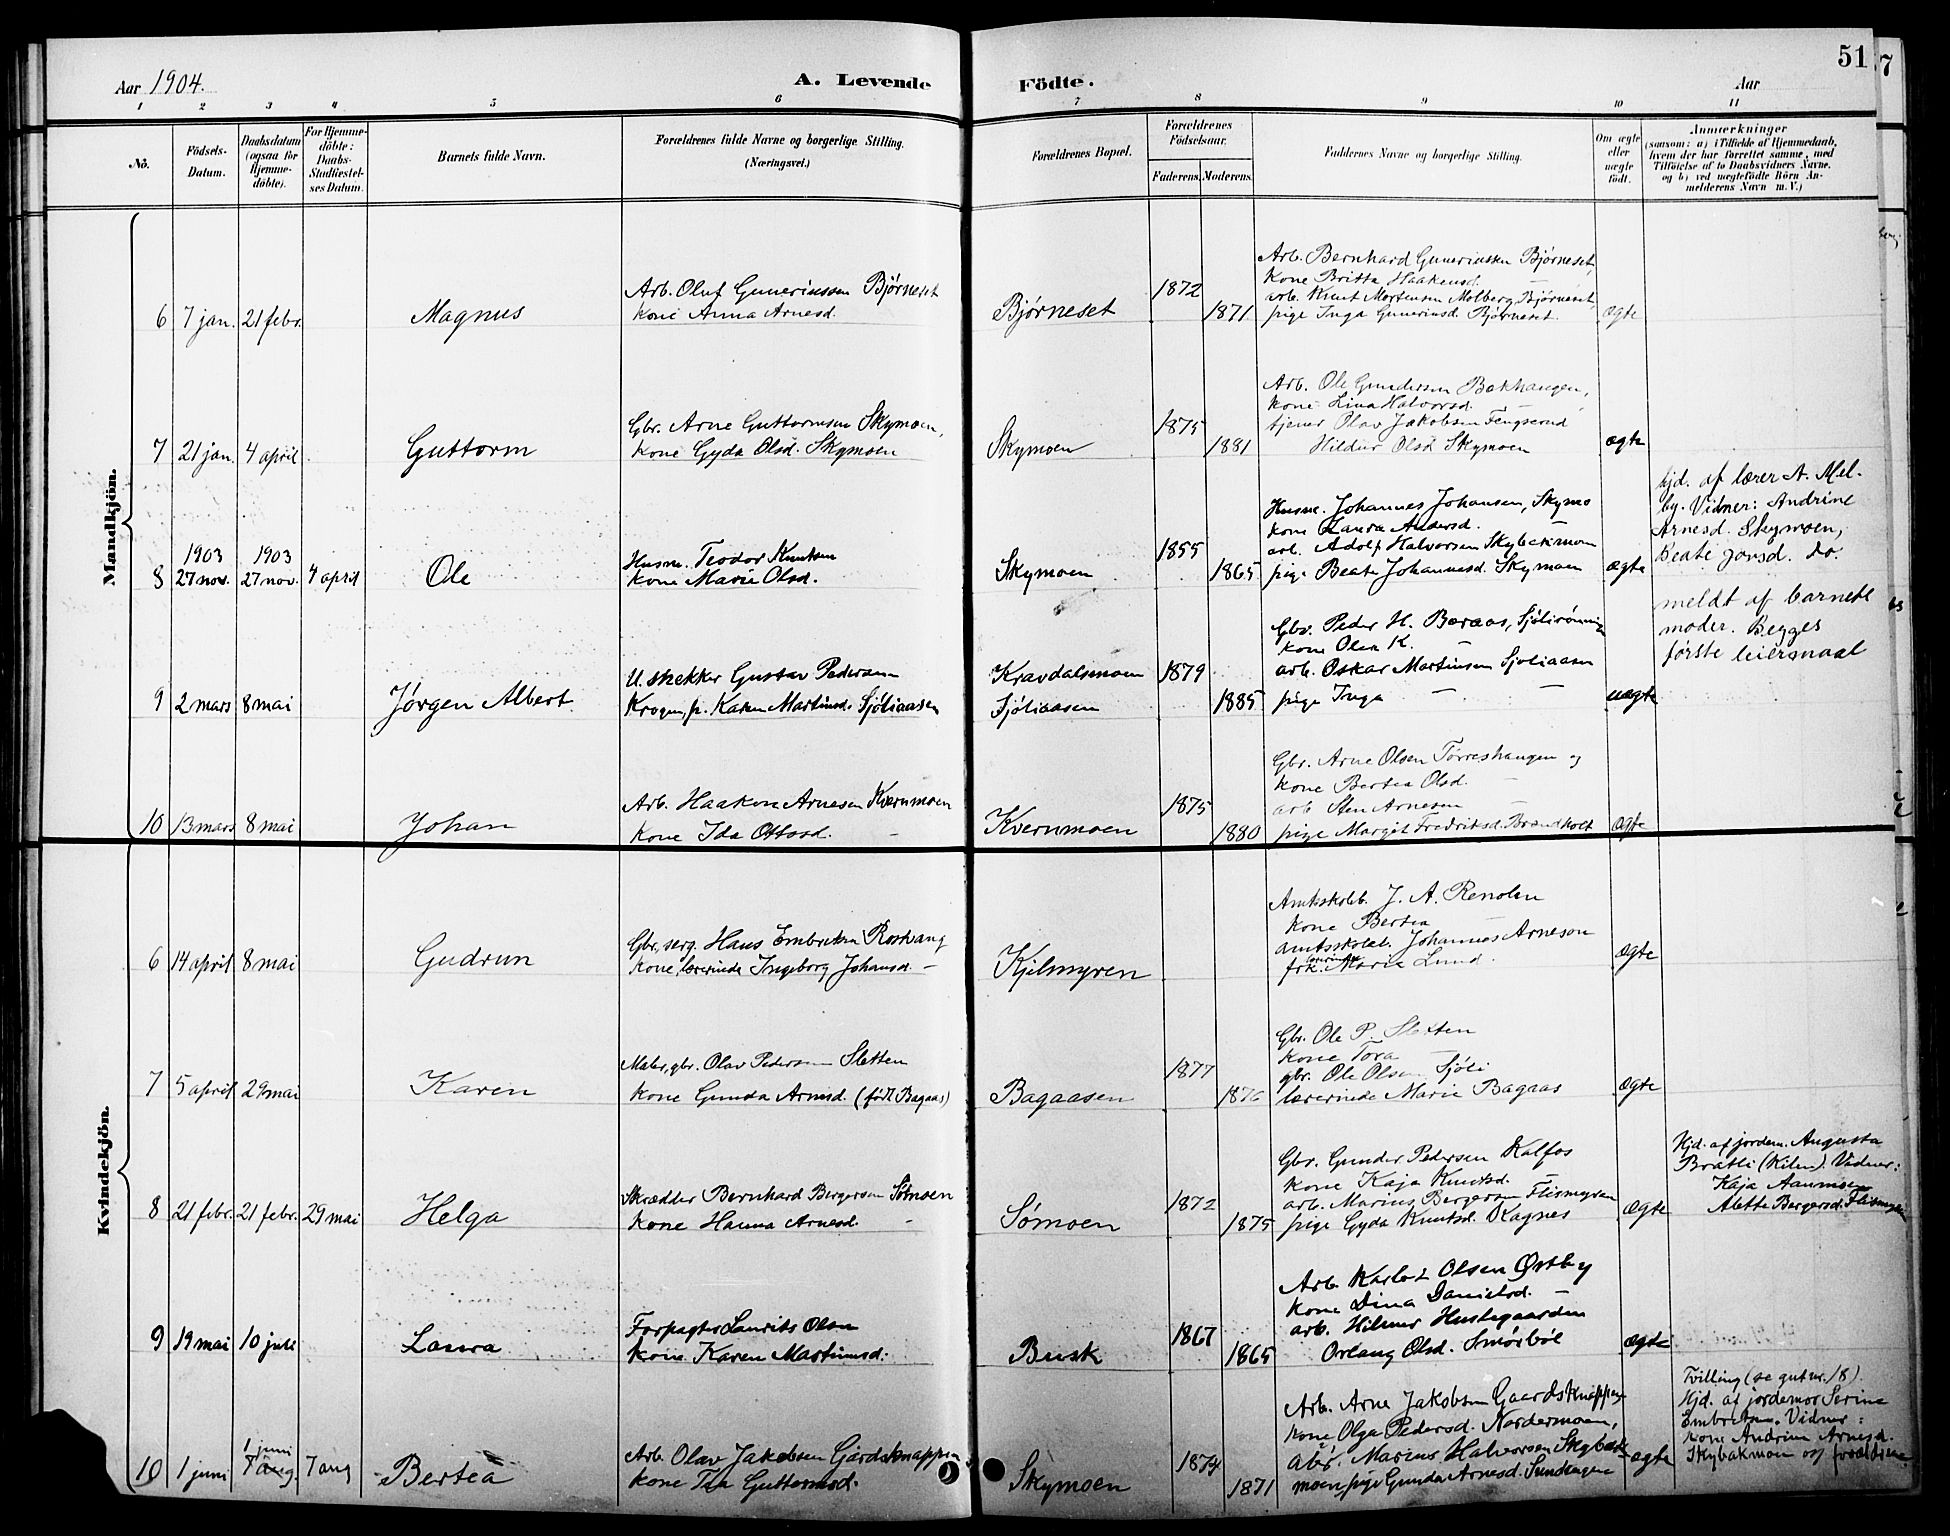 Aar 1904.
A. Levende Födte.
Aar
51
7
1 2 3 4 5 6 7 8 9 10 11
No.
Födsels-Datum.
Daabsdatum (ogsaa for Hjemme-döbte).
For Hjemme-döbte: Daabs-Stadfæstel-ses Datum.
Barnets fulde Navn.
Forældrenes fulde Navne og borgerlige Stilling.
(Næringsvei.)
Forældrenes Bopæl.
Forældrenes Födselsaar.
Faderens. Moderens.
Faddernes Navne og borgerlige Stilling.
Om ægte eller uægte födt.
Anmærkninger
(saasom: a) i Tilfælde af Hjemmedaab,
hvem der har forrettet samme, med
Tilföielse af to Daabsvidners Navne,
og b) ved uægtefödte Börn An-
melderens Navn m. V.)
Mandkjön.
6 7 jan. 21 febr. Magnus
Arb. Oluf Guneriussen Bjørneset
kone Anna Arnesd.
Bjørneset 1872 1871
Arb. Bernhard Guneriussen Bjørneset,
kone Britta Haakensd. —
arb. Knut Mortensen Molberg, Bjørneset,
pige Inga Guneriusd. Bjørneset.
ægte
7 21 jan. 4 april Guttorm
Gbr. Arne Guttormsen Skymoen,
kone Gyda Olsd. Skymoen
Skymoen 1875 1881
Arb. Ole Gundersen Bakhaugen,
kone Lina Halvorsd.
tjener Olav Jakobsen Fengserud
Hildur Olsd Skymoen
ægte
8 1903 27 nov. 1903 27 nov. 4 april Ole
Husm. Teodor Knutsen
kone Marie Olsd.
Skymoen 1855 1865
Husm. Johannes Johansen, Skymo
kone Laura Andersd. —
arb. Adolf Halvorsen Skybekmoen
pige Beate Johannesd. Skymoen
ægte
hjd. af lærer A. Mel-
by. Vidner: Andrine
Arnesd. Skymoen,
Beate Jonsd. do.
9 2 mars 8 mai Jørgen Albert
U.skekker Gustav Pedersen
Krogen, p. Karen Martinsd. Sjøliaasen
Kravdalsmoen
Sjøliaasen
1879 1885
Gbr. Peder H. Beraas, Sjølirønningen
kone Olea K. —
arb. Oskar Martinsen Sjøliaasen
pige Inga — —
uægte
meldt af barnets
moder. Begges
første leiersmaal
10 13 mars 8 mai Johan
Arb. Haakon Arnesen Kvernmoen
kone Ida Ottosd. —
Kvernmoen 1875 1880
Gbr. Arne Olsen Tørreshaugen og
kone Bertea Olsd. —
arb. Sten Arnesen
pige Margit Fredriksd. Brændholt
ægte
Kvindekjön.
6 14 april 8 mai Gudrun
Gbr., serg. Hans Embretsen Roskvang
kone lærerinde Ingeborg Johansd. —
Kjelmyren
Amtsskoleb. J. A. Renolen
kone Bertea —
amtsskolel. Johannes Arneson
frk. lærerinde Marie Lund.
ægte
7 5 april 29 mai Karen
Maler, gbr. Olav Pedersen Sletten
kone Gunda Arnesd. (født Bagaas)
Bagaasen 1877 1876
Gbr. Ole P. Sletten
kone Tora —
gbr. Ole Olsen Sjøli
lærerinde Marie Bagaas
ægte
8 21 febr. 21 febr. 29 mai Helga
Skrædder Bernhard Bergersen Sømoen
kone Hanna Arnesd. —
Sømoen 1872 1875
Gbr. Gunder Pedersen Kalfos
kone Kaja Knutsd.
arb. Marius Bergersen Flismyren
pige Gyda Knutsd. Kagnes
ægte
Hjd. af jordem. Augusta
Bratli (Kilen) Vidner:
Kaja Aanmoen
Alette Bergersd. Flismyren
9 19 mai 10 juli Laura
Forpagter Laurits Olsen
kone Karen Martinsd.
Busk 1867 1865
Arb. Karl Olsen Østby
kone Dina Danielsd. —
arb. Hilmer Hustegaarden
Orlaug Olsd. Smørbøl
ægte
10 1 juni 1 juni 7 aug. 7 aug Bertea
Arb. Olav Jakobsen Gjardsknappen
kone Tea Guttormsd.
Skymoen 1874 1871
Arb. Arne Jakobsen Gaardsknappen
kone Olga Pedersd. Nordermoen,
abr. Marius Halvorsen Skybak-
moen, pige Gunda Arnesd. Sundhagen
ægte
Tvilling (se gut nr. 18).
Hjd. af jordemor Serine
Embretsen. Vidner:
kone Andrine Arnesd.
Skybakmoen og forældrene.